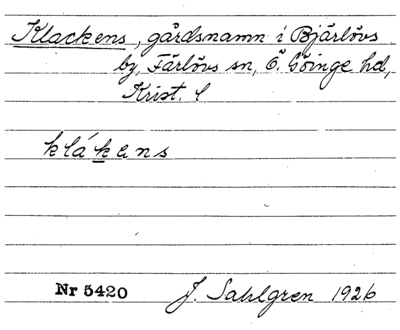 Klackens, gårdsnamn i Bjärlövs
by, Färlövs sn, Ö. Göinge hd,
Krist. l
klákens
Nr 5420 J. Sahlgren 1926